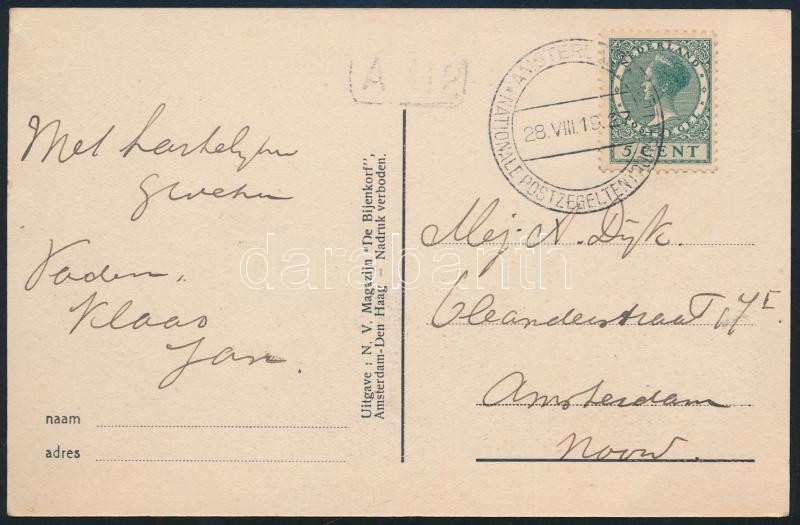 A 112
AMSTERDAM
NATIONALE POSTZEGELTENT
28.VIII.19
NEDERLAND
POSTZEGEL
5 CENT
Met hartelijke
groeten
Vader,
Klaas
Jan.
naam
adres
Uitgave : N. V. Magazijn "De Bijenkorf",
Amsterdam-Den Haag – Nadruk verboden.
Mej. N. Dijk.
Oleanderstraat 17 I
Amsterdam
Noord.
darabanth